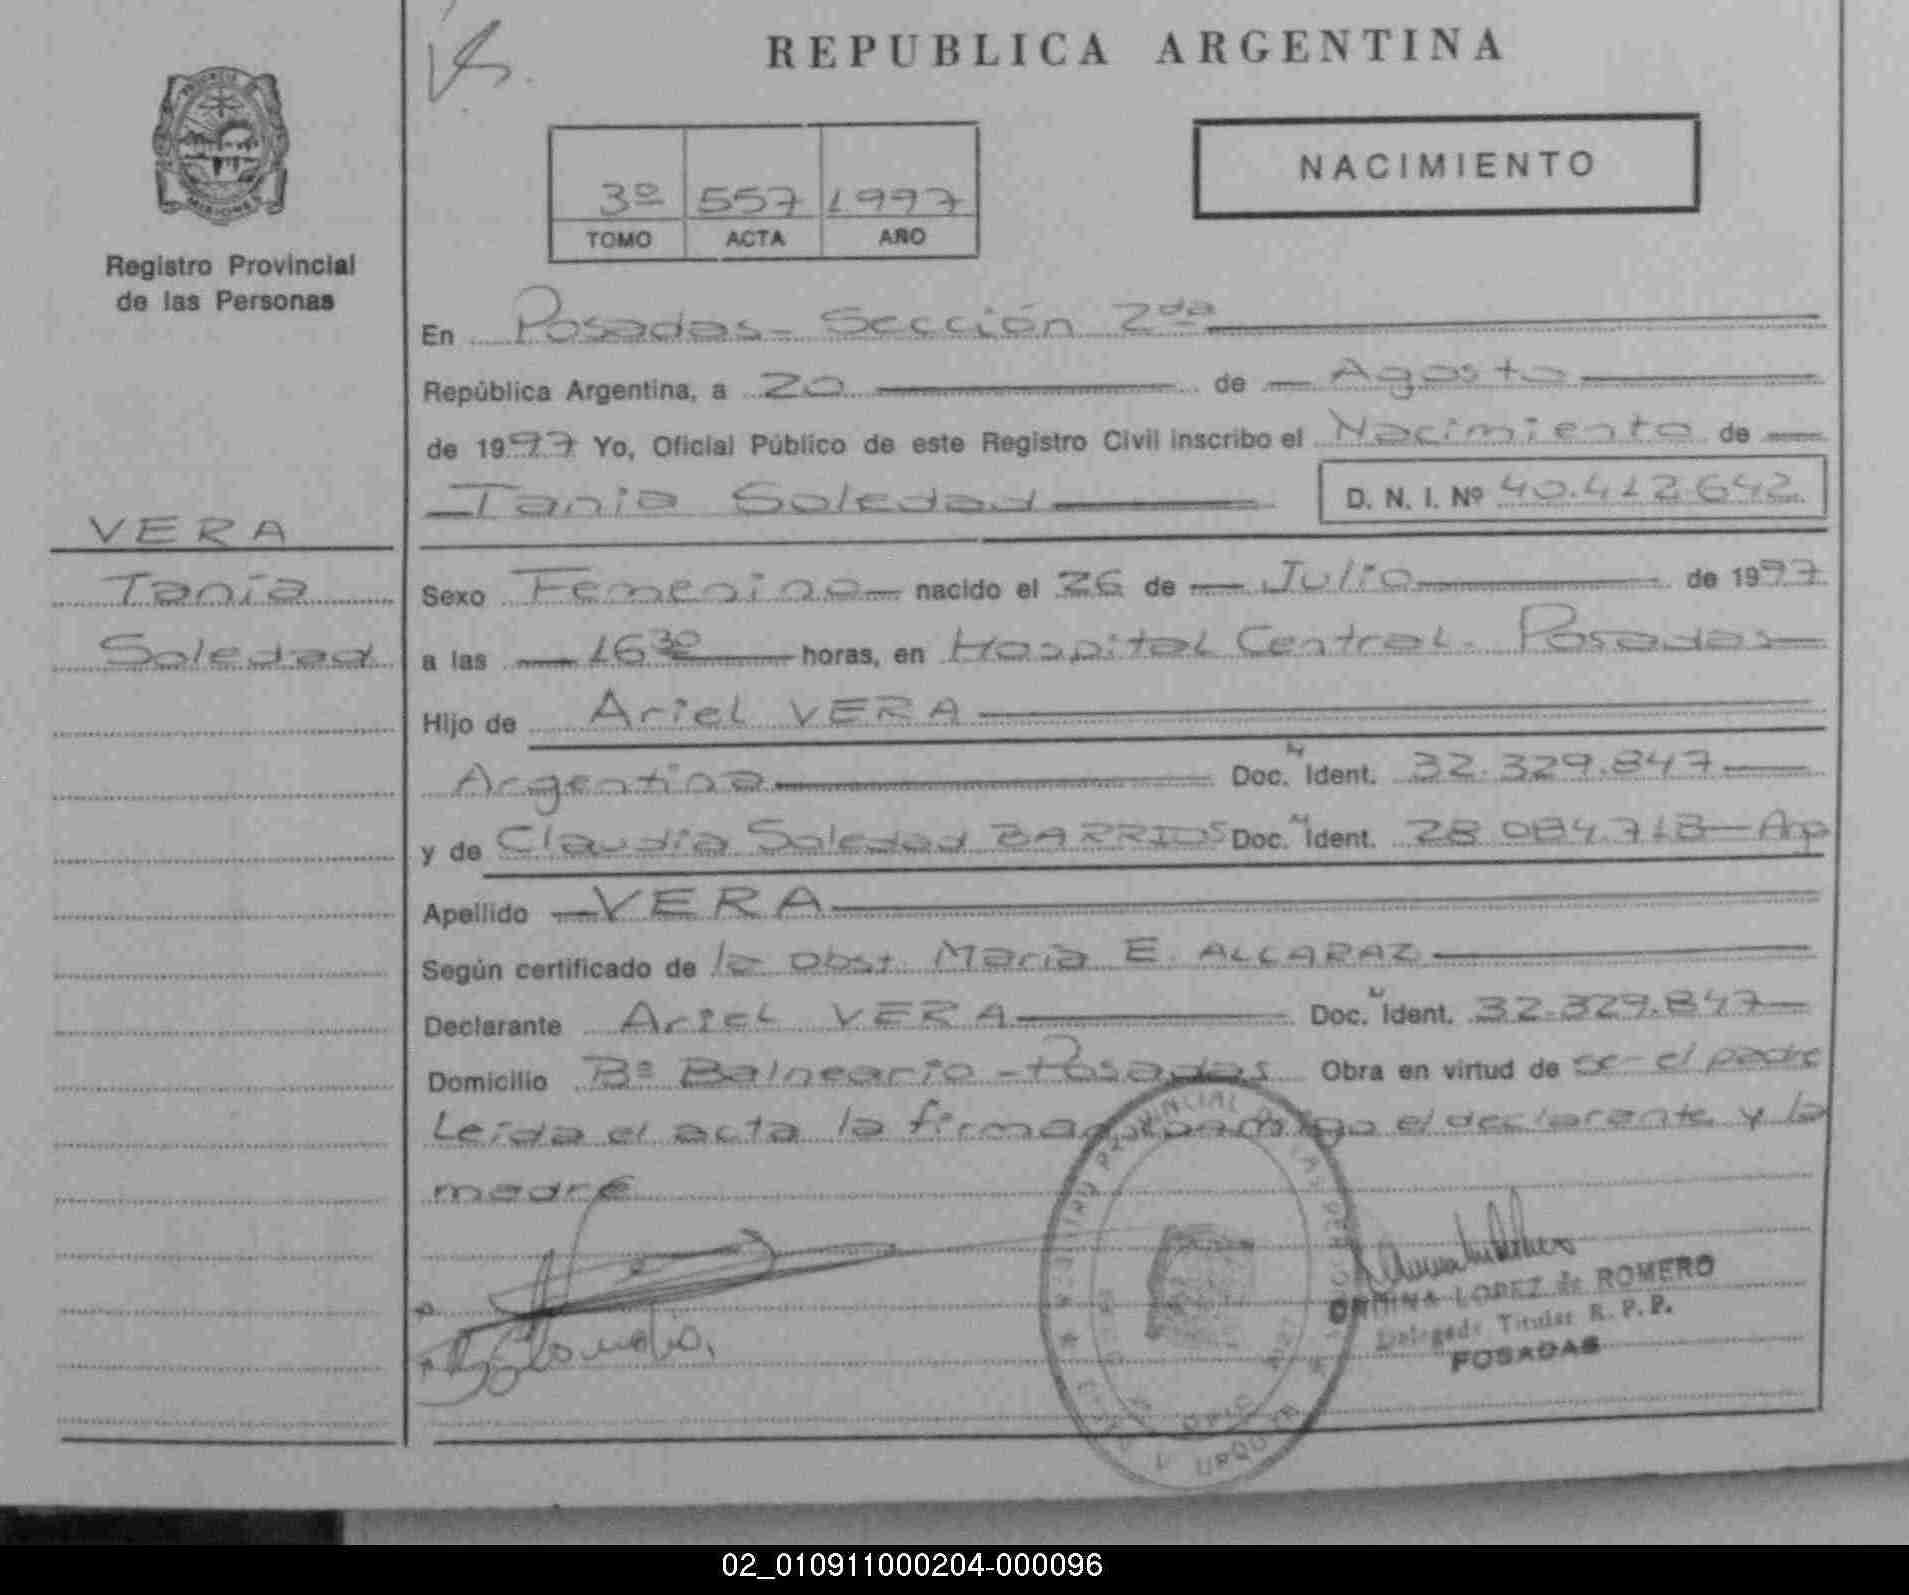 REPUBLICA ARGENTINA
PROVINCIA DE
MISIONES
Registro Provincial
de las Personas
NACIMIENTO
3º 557 1997
TOMO ACTA AÑO
En Posadas - Sección 2da
República Argentina, a 20 de Agosto
de 1997 Yo, Oficial Público de este Registro Civil inscribo el Nacimiento de
Tania Soledad D. N. I. Nº 40.412.642
VERA
Tania
Soledad
Sexo Femenino nacido el 26 de Julio de 1997
a las 16 30 horas, en Hospital Central. Posadas
Hijo de Ariel VERA
Argentina Doc. Ident. 32.329.847
y de Claudia Soledad BARRIOS Doc. Ident. 28.084.718 - Arg
Apellido VERA
Según certificado de la Obst. María E. ALCARAZ
Declarante Ariel VERA Doc. Ident. 32.329.847
Domicilio Bº Balneario - Posadas Obra en virtud de ser el padre
Leída el acta la firman conmigo el declarante y la
madre
Claudia
LOPEZ de ROMERO
Delegada Titular R. P. P.
POSADAS
02_010911000204-000096